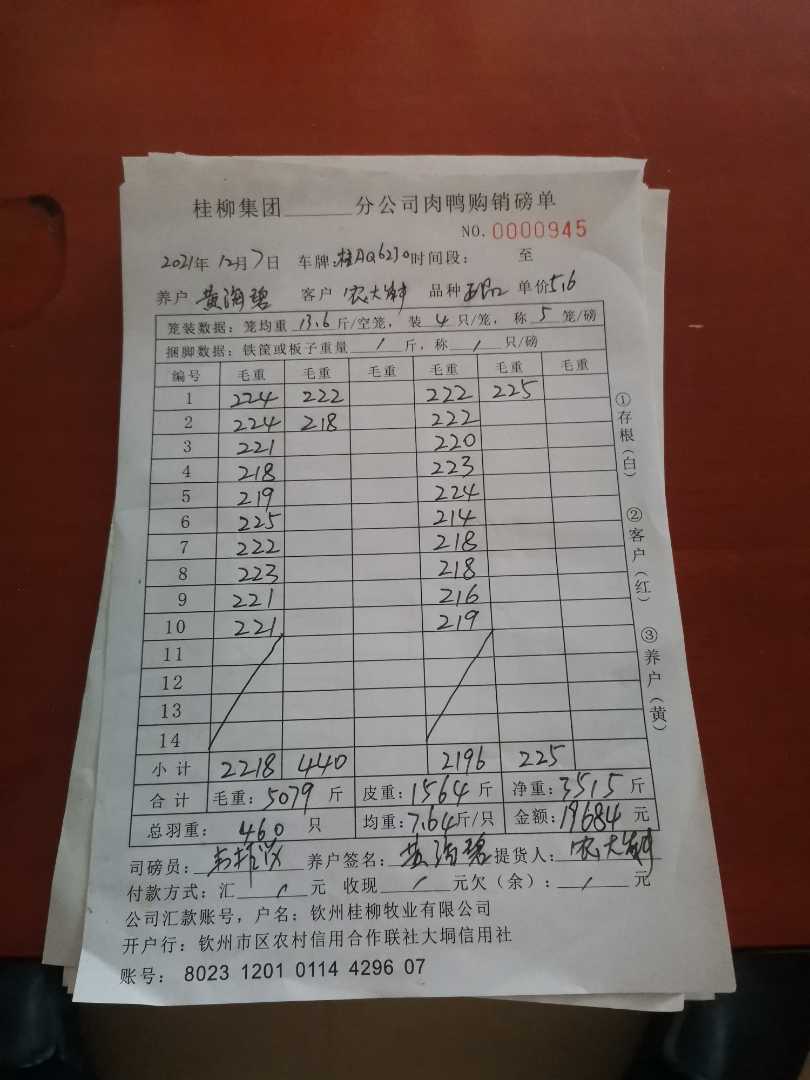 桂柳集团______分公司肉鸭购销磅单
NO. 0000945
2021年12月7日 车牌:桂AQ6230 时间段: 至
养户 黄海碧 客户 农大发 品种 单价5.6
笼装数据: 笼均重 13.6 斤/空笼, 装 4 只/笼, 称 5 笼/磅
捆脚数据: 铁筐或板子重量 / 斤, 称 / 只/磅
编号 毛重 毛重 毛重 毛重 毛重 毛重
1 224 222 222 225
2 224 218 222
3 221 220
4 218 223
5 219 224
6 225 214
7 222 218
8 223 218
9 221 216
10 221 219
11
12
13
14
小计 2218 440 2196 225
合计 毛重: 5079 斤 皮重: 1564 斤 净重: 3515 斤
总羽重: 460 只 均重: 7.64 斤/只 金额: 19684 元
司磅员: 养户签名: 黄海碧 提货人: 农大发
付款方式: 汇 / 元 收现 / 元欠(余): / 元
公司汇款账号, 户名: 钦州桂柳牧业有限公司
开户行: 钦州市区农村信用合作联社大垌信用社
账号: 8023 1201 0114 4296 07
①存根(白)
②客户(红)
③养户(黄)